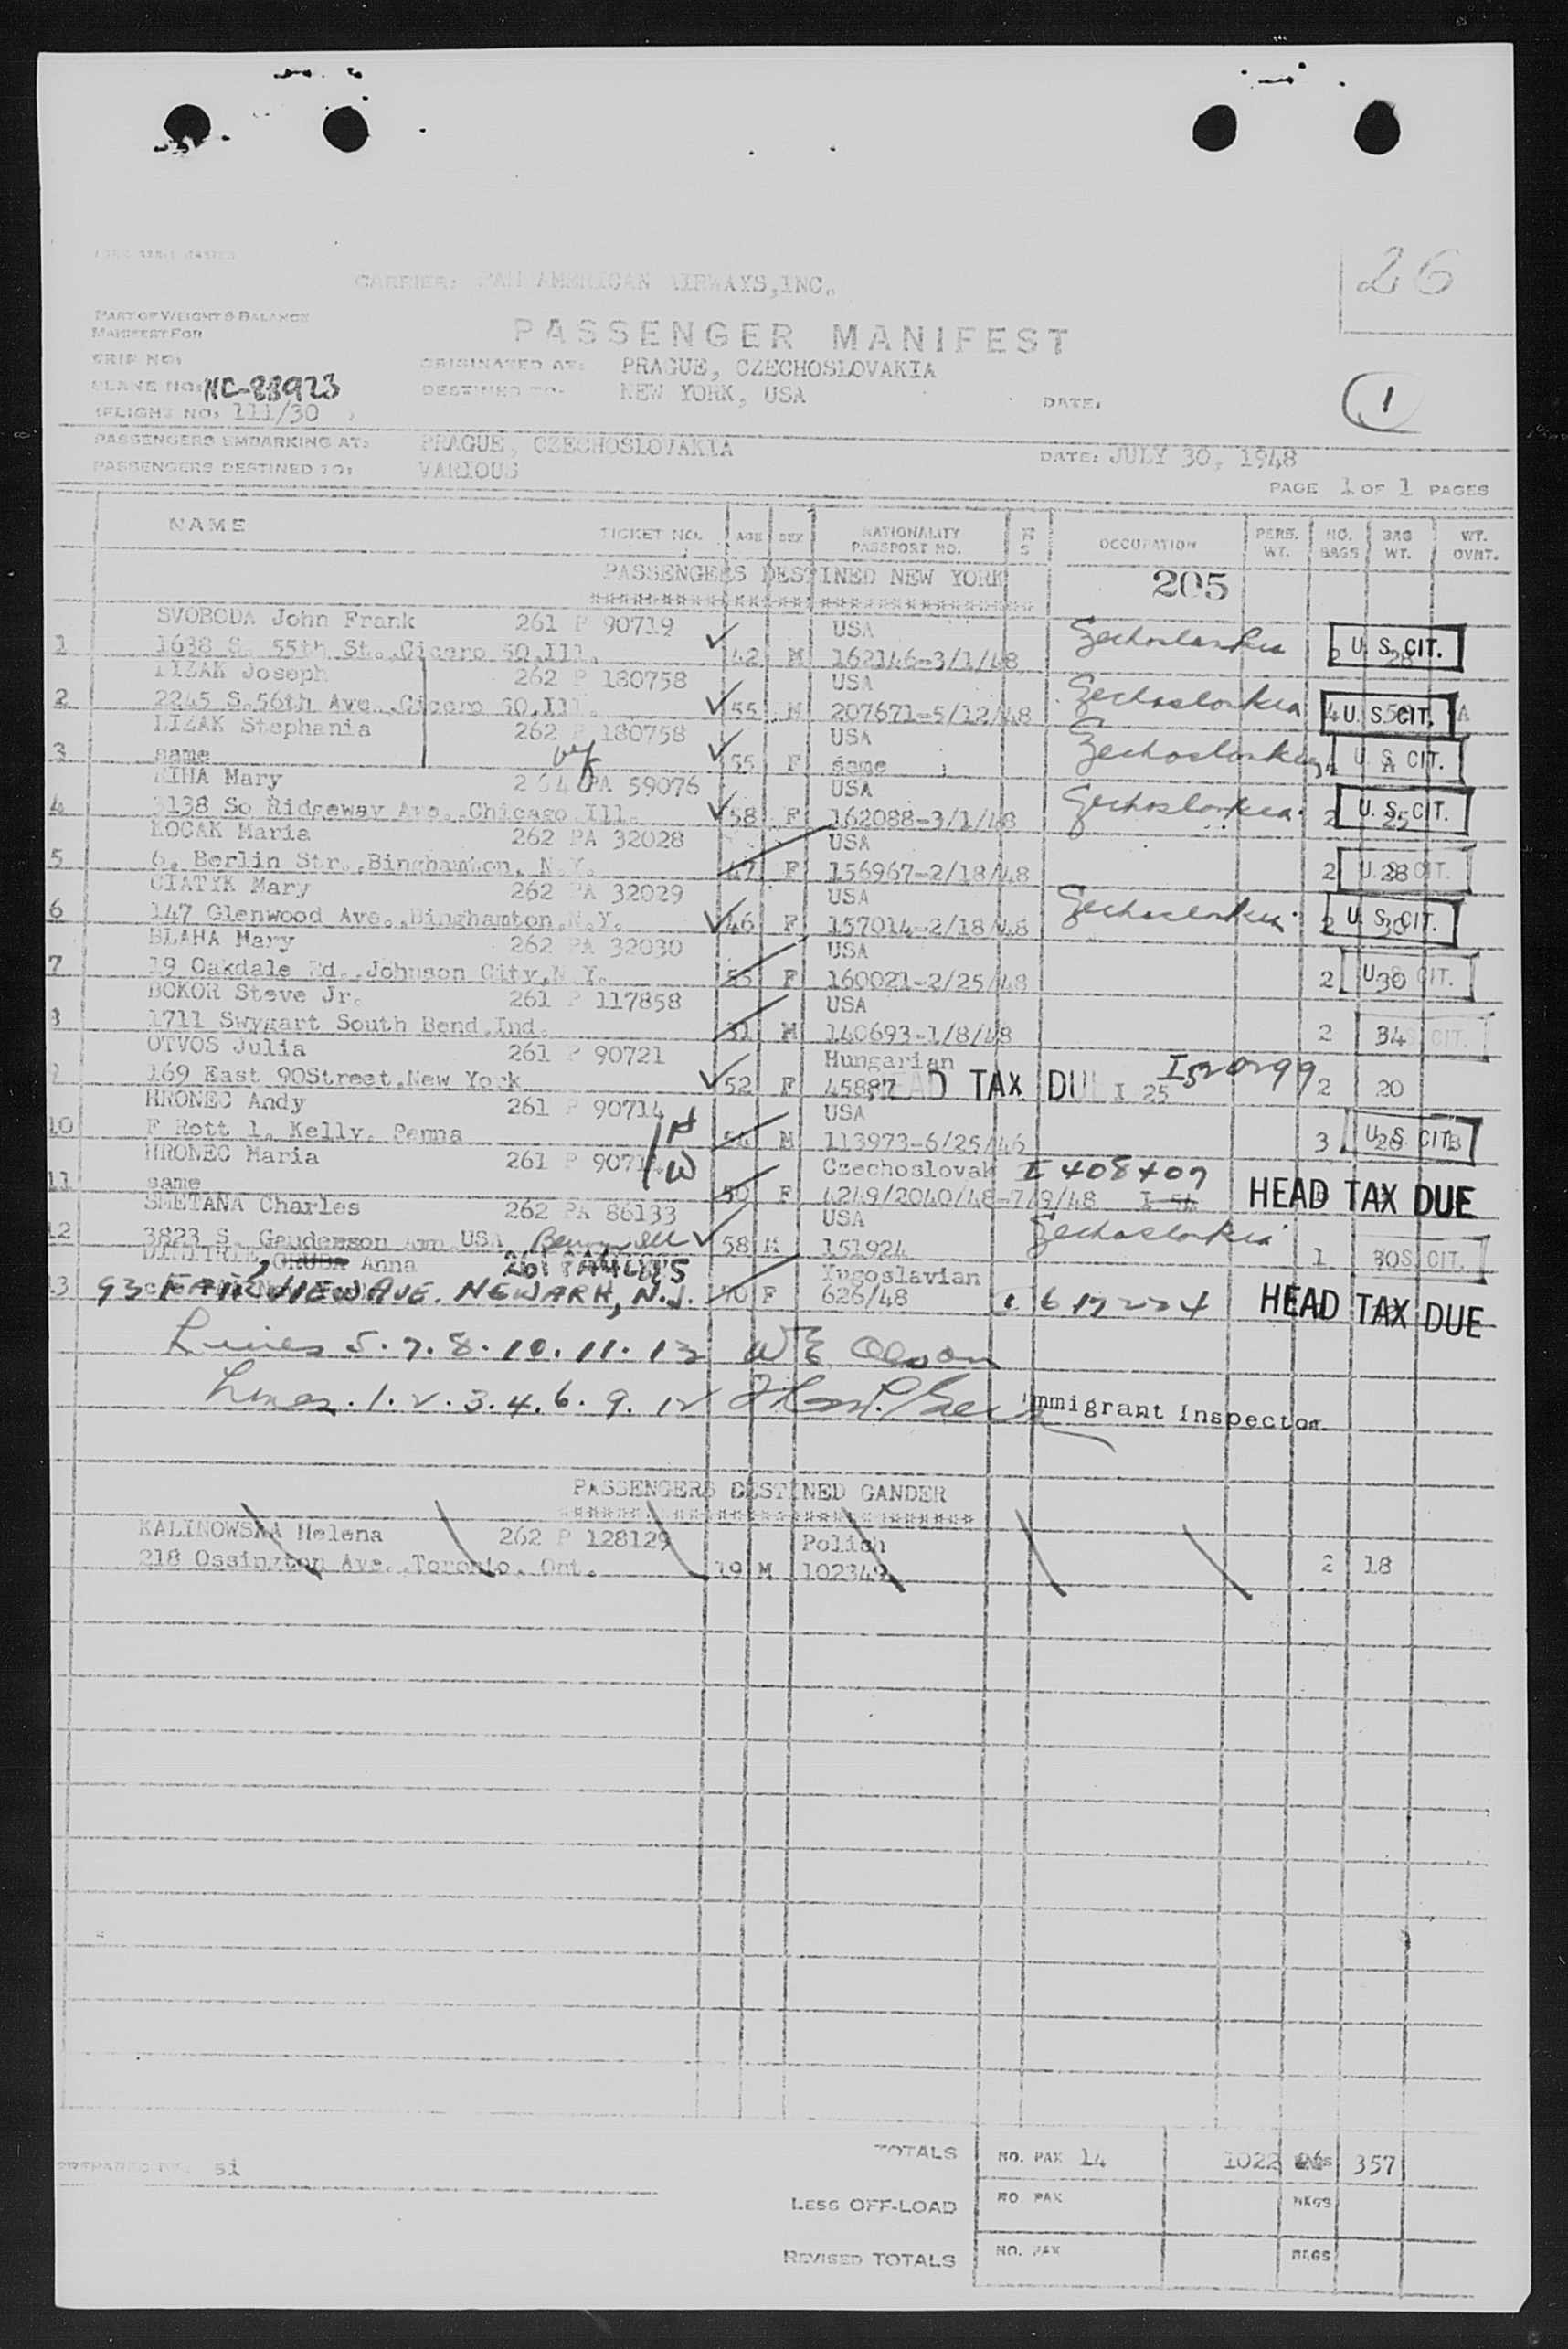 26
CARRIER: PAN AMERICAN AIRWAYS,INC.
PART OF WEIGHT & BALANCE
MANIFEST FOR
PASSENGER MANIFEST
TRIP NO:
ORIGINATED AT: PRAGUE, CZECHOSLOVAKIA
PLANE NO: NC-88923
DESTINED TO: NEW YORK, USA
DATE:
1
(FLIGHT NO: 111/30 )
PASSENGERS EMBARKING AT: PRAGUE, CZECHOSLOVAKIA
DATE: JULY 30, 1948
PASSENGERS DESTINED TO: VARIOUS
PAGE 1 OF 1 PAGES
NAME TICKET NO. AGE SEX NATIONALITY PASSPORT NO. OCCUPATION PERS. WT. NO. BAGS BAG WT. WT. OVNT.
PASSENGERS DESTINED NEW YORK 205
SVOBODA John Frank 261 P 90719 USA
1 1638 S. 55th St.,Cicero 50,Ill. 42 M 162146-3/1/48 Zechoslovkia 2 28 U. S. CIT.
LIZAK Joseph 262 P 180758 USA
2 2245 S.56th Ave.,Cicero 50,Ill. 55 M 207671-5/12/48 Zechoslovkia 4 U. S. CIT. A
LIZAK Stephania 262 P 180758 USA
3 same wf 55 F same Zechoslovkia U. S. CIT.
RIHA Mary 264 PA 59076 USA
4 3138 So Ridgeway Ave.,Chicago,Ill. 58 F 162088-3/1/48 Zechoslovkia 2 25 U. S. CIT.
KOCAK Maria 262 PA 32028 USA
5 6, Berlin Str.,Binghamton, N.Y. 47 F 156967-2/18/48 2 28 U. S. CIT.
CIATYK Mary 262 PA 32029 USA
6 147 Glenwood Ave.,Binghamton,N.Y. 46 F 157014-2/18/48 Zechoslovkia 2 30 U. S. CIT.
BLAHA Mary 262 PA 32030 USA
7 19 Oakdale Rd.,Johnson City,N.Y. 55 F 160021-2/25/48 2 30 U. S. CIT.
BOKOR Steve Jr. 261 P 117858 USA
8 1711 Swygart South Bend,Ind. 31 M 140693-1/8/48 2 34 U. S. CIT.
OTVOS Julia 261 P 90721 Hungarian I520299
9 169 East 90Street,New York 52 F 45887 HEAD TAX DUE I 25 2 20
HRONEC Andy 261 P 90714 H USA
10 F Rott 1, Kelly, Penna 54 M 113973-6/25/46 3 28 U. S. CIT.
HRONEC Maria 261 P 90714 W Czechoslovak I 408407
11 same 50 F 4249/2040/48-7/9/48 HEAD TAX DUE
SMETANA Charles 262 PA 86133 USA
12 3823 S. Gunderson USA Berwyn Ill 58 M 151924 Zechoslovkia 1 30 U. S. CIT.
DIMITRIE, GRUBA Anna Yugoslavian
13 93 FAIRVIEW AVE. NEWARK, N.J. 70 F 626/48 HEAD TAX DUE
Lines 5.7.8.10.11.13 W E Olson
Lines.1.2.3.4.6.9.12 Immigrant Inspector
PASSENGERS DESTINED GANDER
KALINOWSKA Helena 262 P 128129 Polish
218 Ossington Ave.,Toronto, Ont. 19 M 102349 2 18
TOTALS NO. PAX 14 1022 26 357
PREPARED BY: si
LESS OFF-LOAD NO. PAX BAGS
REVISED TOTALS NO. PAX BAGS